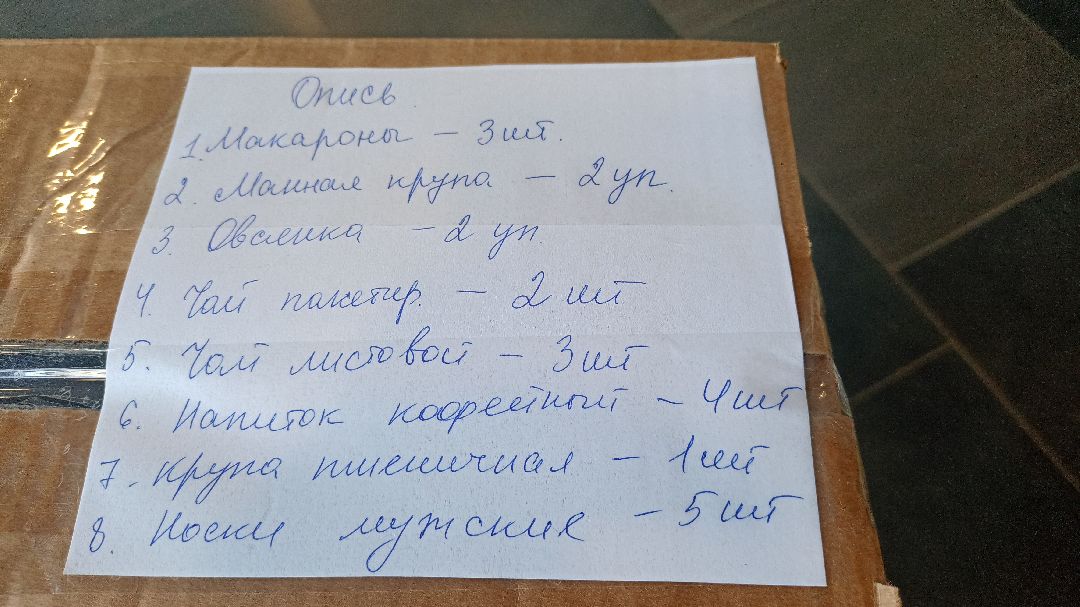 Опись
1. Макароны - 3 шт.
2. Манная крупа - 2 уп.
3. Овсянка - 2 уп.
4. Чай пакетир. - 2 шт
5. Чай листовой - 3 шт
6. Напиток кофейный - 4 шт
7. Крупа пшеничная - 1 шт
8. Носки мужские - 5 шт